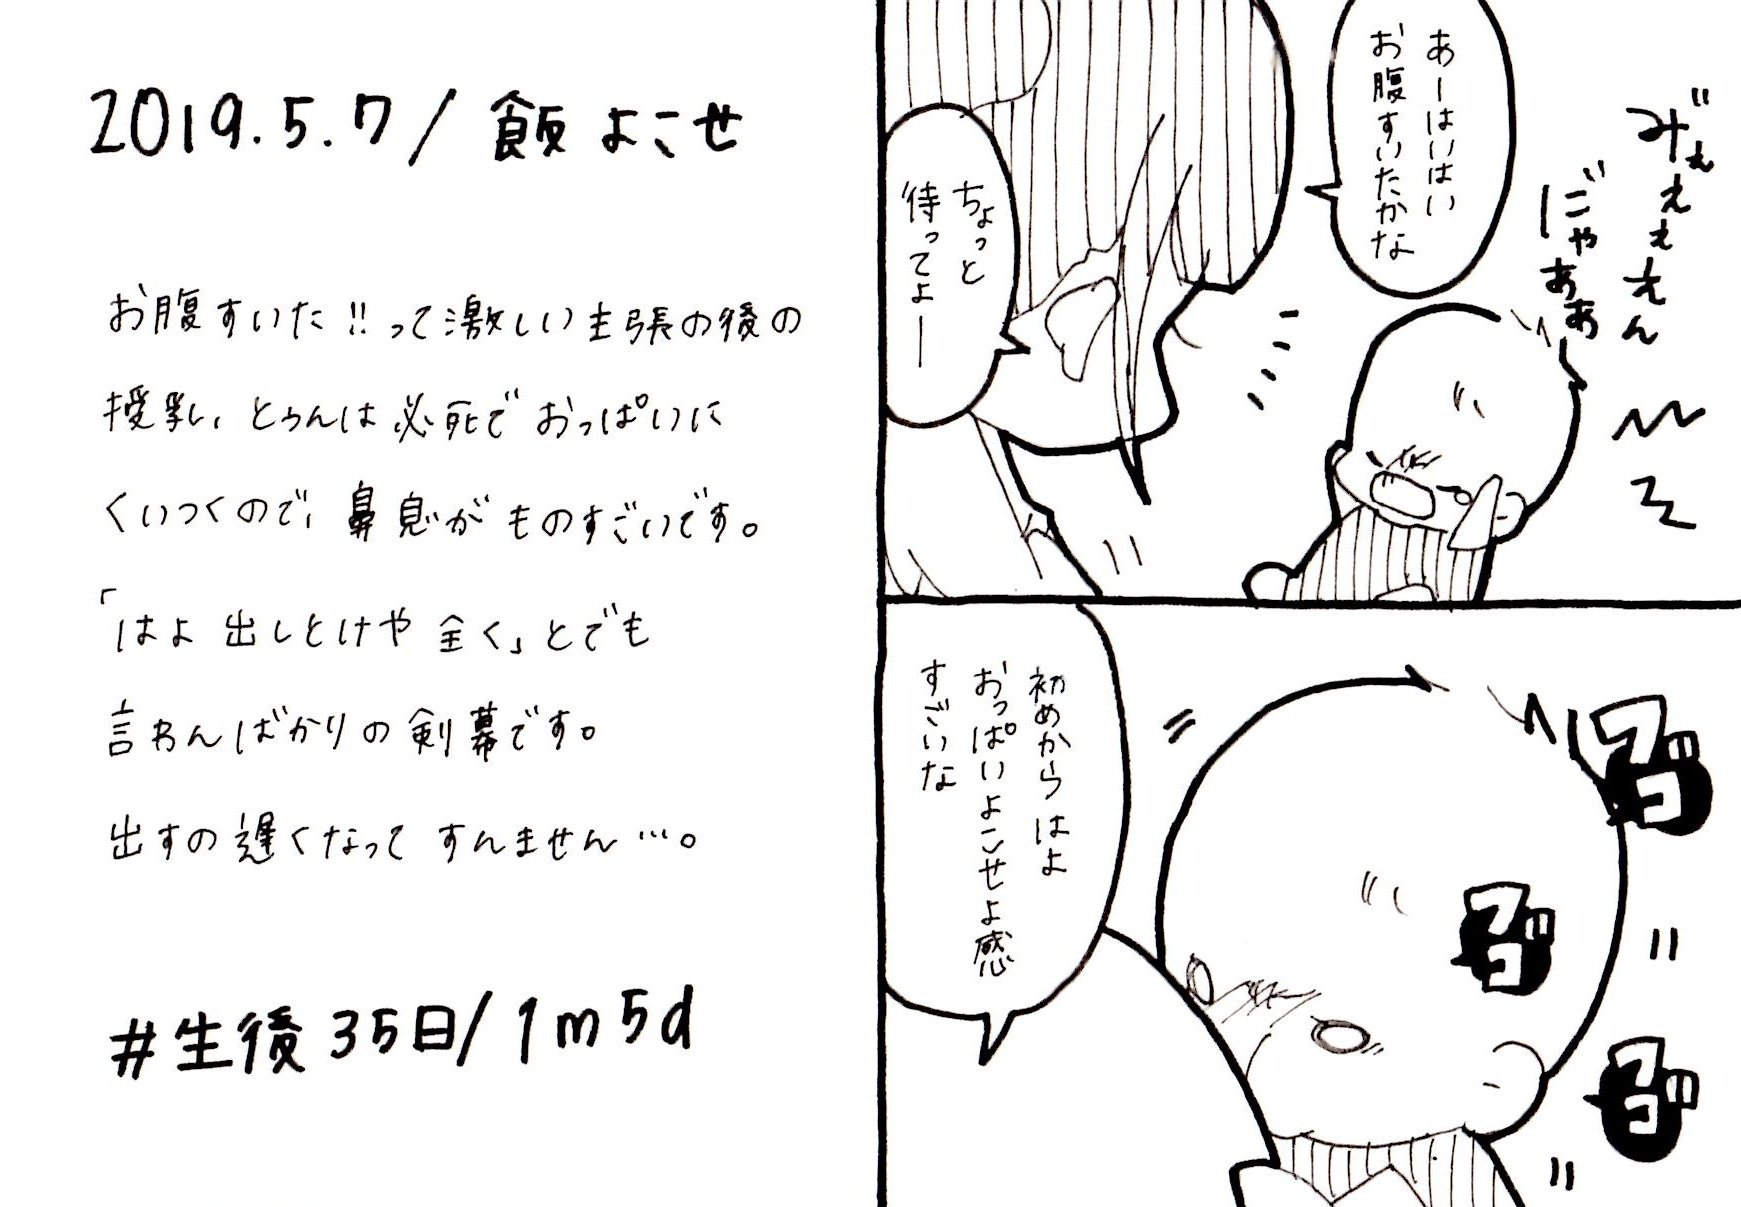 2019.5.7/飯よこせ
お腹すいた!!って激しい主張の後の
授乳、とぅんは必死でおっぱいに
くいつくので、鼻息がものすごいです。
「はよ出しとけや全く」とでも
言わんばかりの剣幕です。
出すの遅くなってすんません…。
#生後35日/1m5d
み゛ぇぇぇえん
に゛ゃぁぁ
あーはいはい
お腹すいたかな
ちょっと
待ってよー
初めからはよ
おっぱいよこせよ感
すごいな